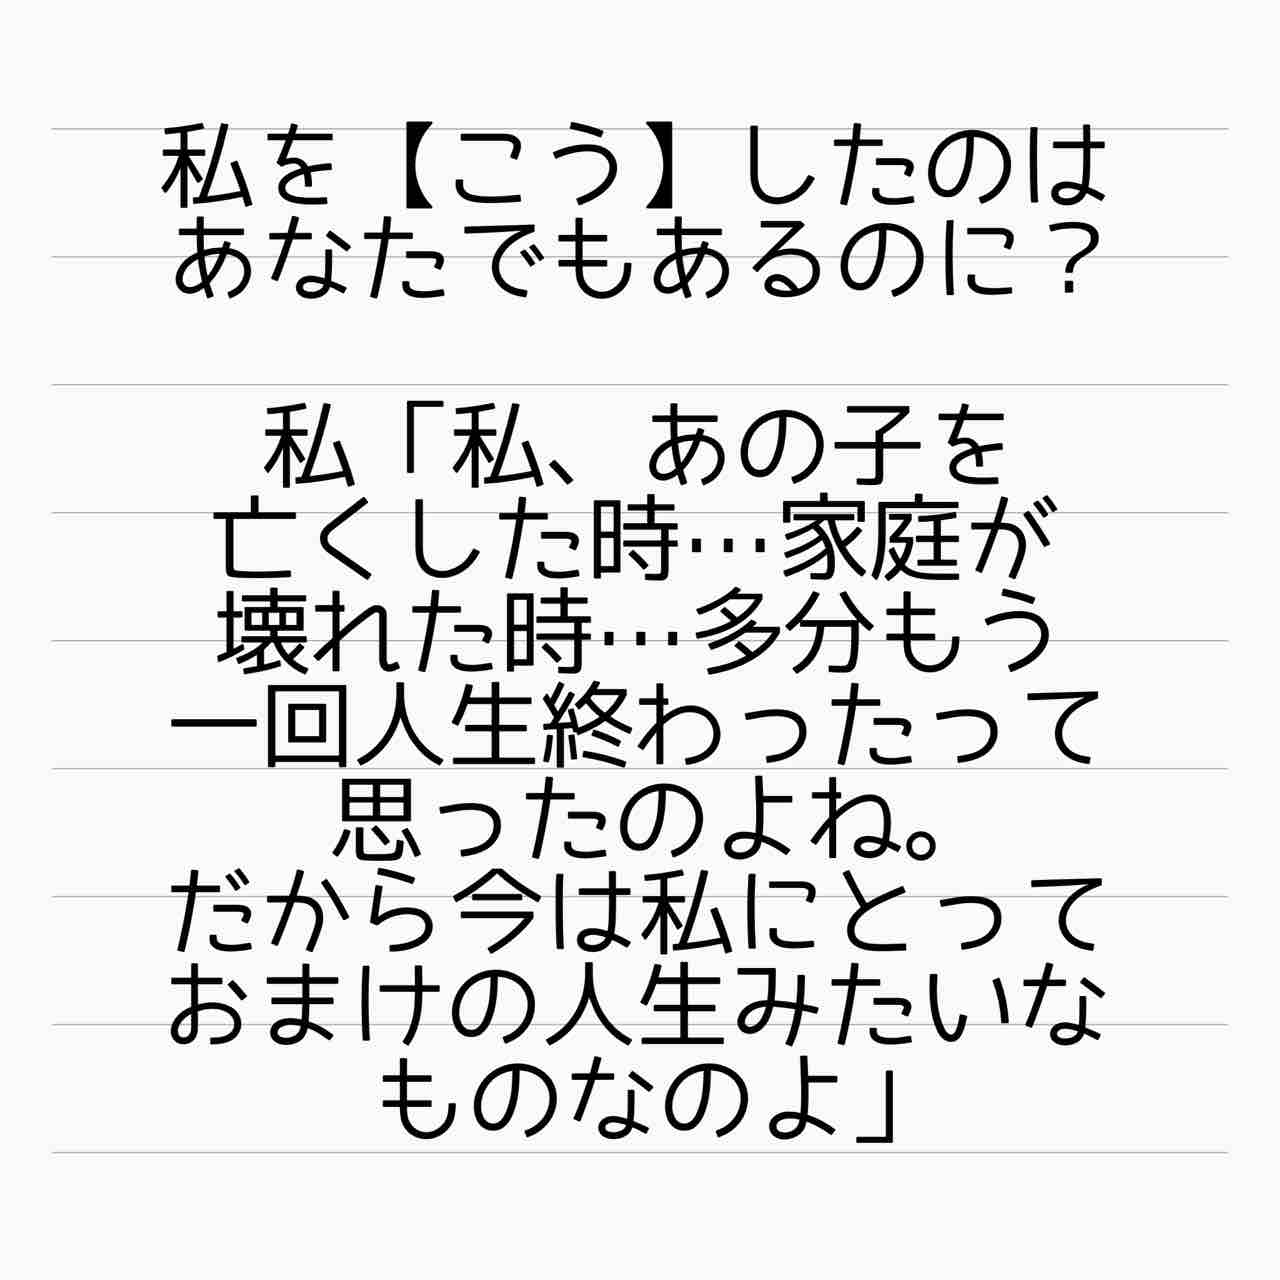 私を【こう】したのは
あなたでもあるのに？
私「私、あの子を
亡くした時…家庭が
壊れた時…多分もう
一回人生終わったって
思ったのよね。
だから今は私にとって
おまけの人生みたいな
ものなのよ」